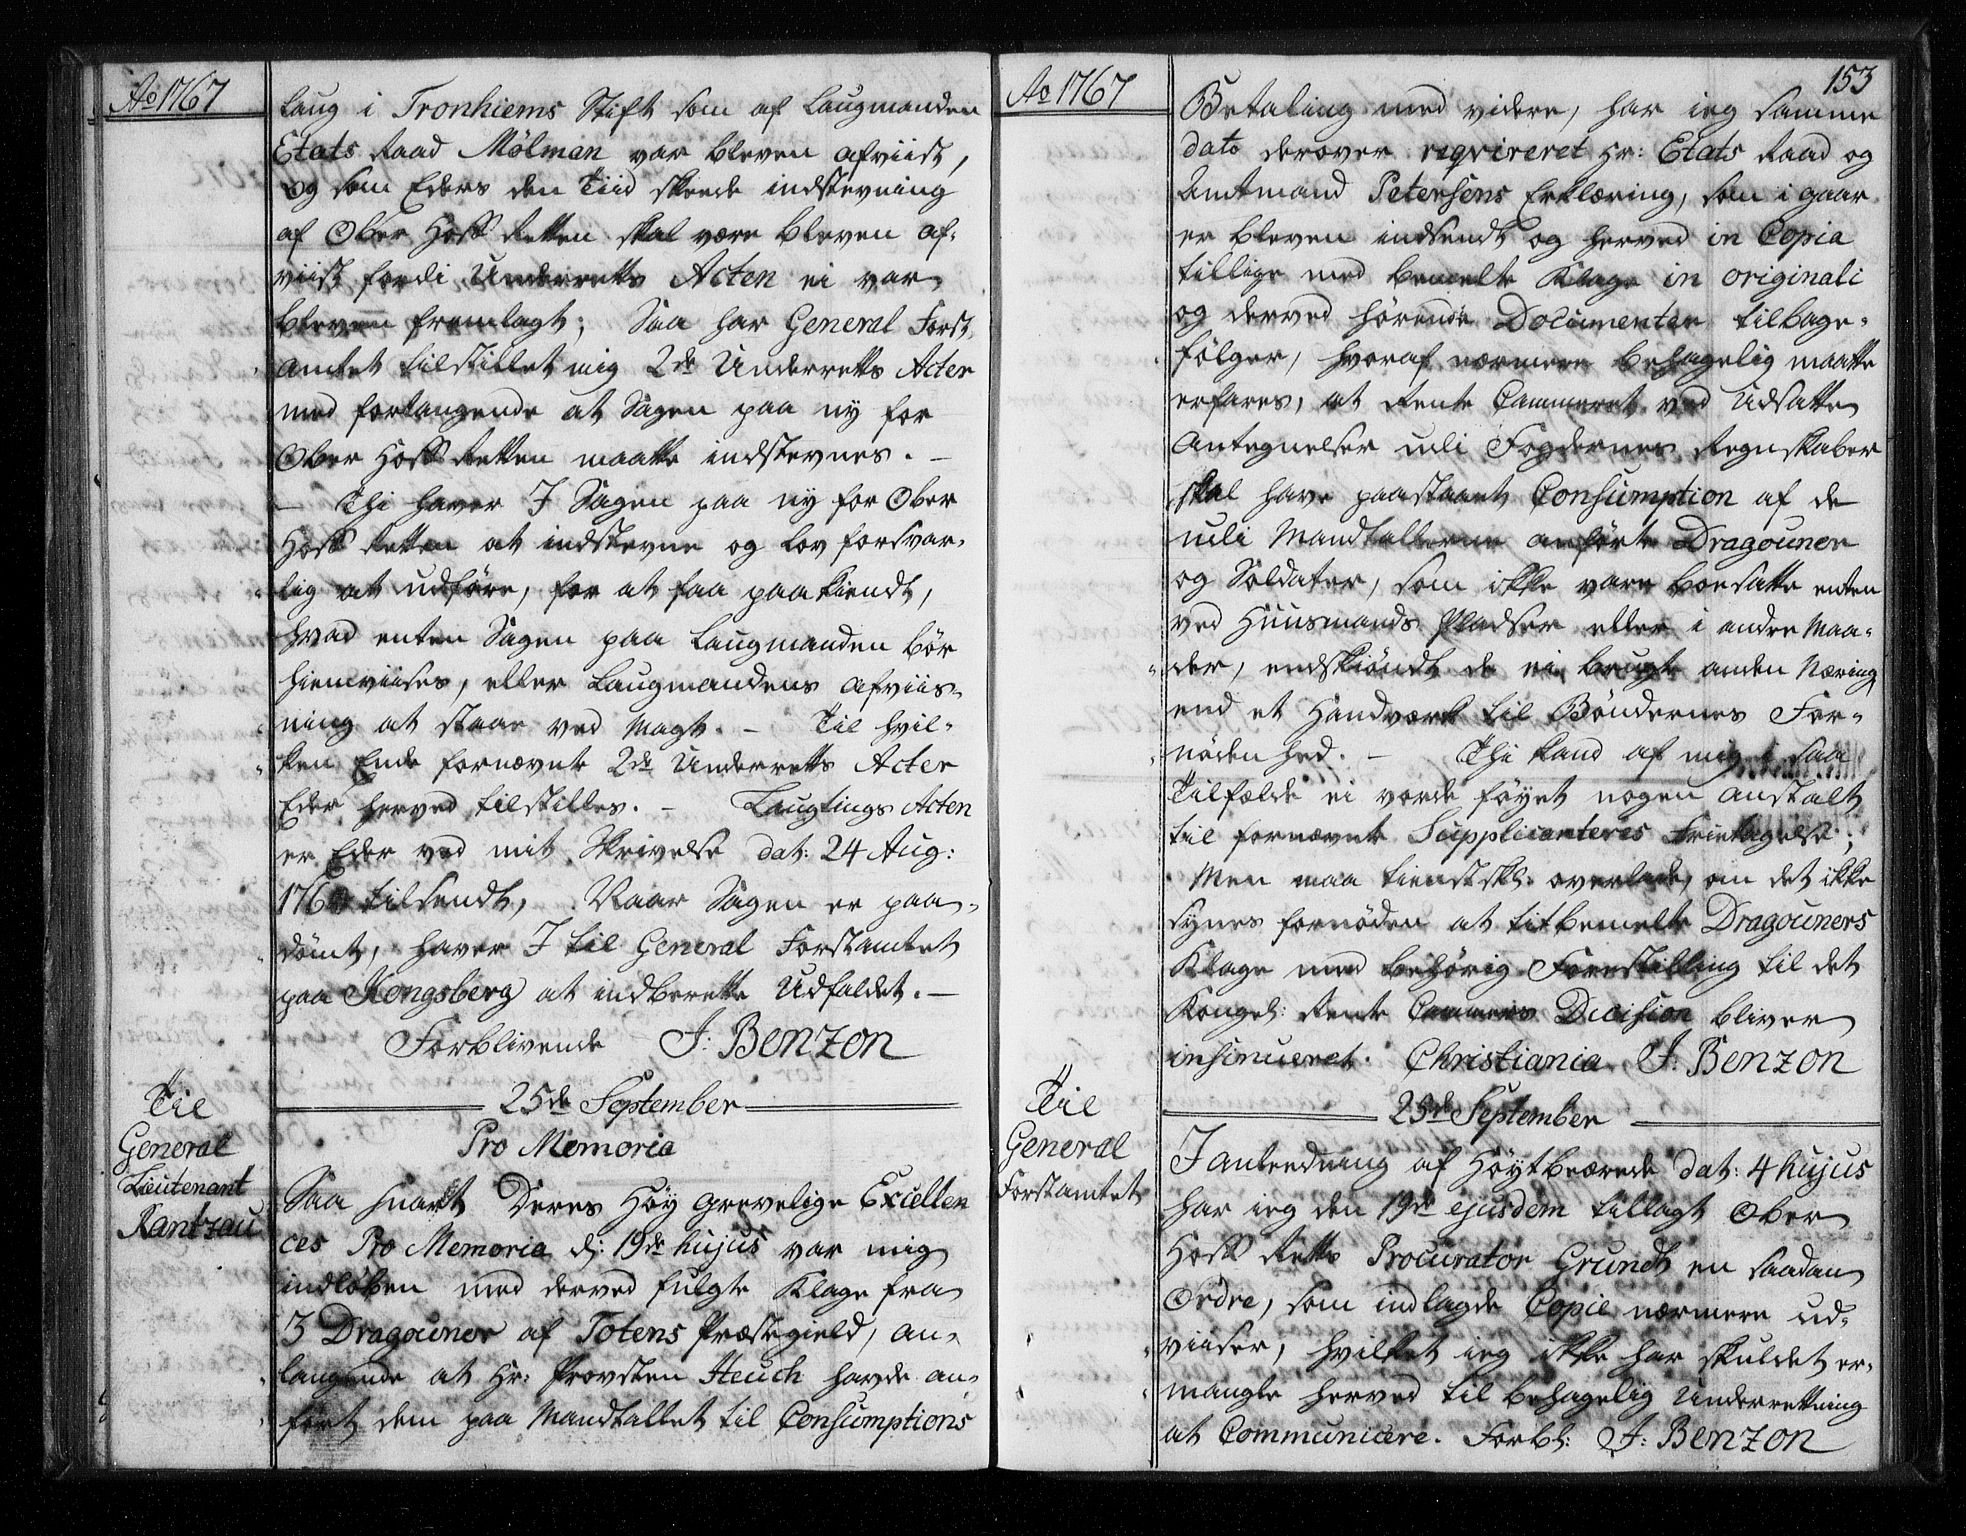 Ao 1767
Laug i Tronhiems Stift som af Laugmanden
Etats Raad Mølman var bleven afviist,
og som Eders den Tiid skeede indstevning
af Ober Hoff Retten skal være bleven af-
viist fordi Underretts Acten ei var
bleven fremlagt; Saa har General Forst
Amtet tilstillet mig 2de Underretts Acter
med forlangende at Sagen paa ny for
Ober Hoff Retten maatte indstevnes. —
— Thi haver I Sagen paa ny for Ober
Hoff Retten at indstevne og lov forsvar-
lig at udføre, for at faa paakiendt,
hvad enten Sagen paa Laugmanden bør
hienviises, eller Laugmandens afviis-
ning at staae ved Magt. — Til hvil-
ken Ende fornævnte 2de Underretts Acter
Eder herved tilstilles. — Laugtings Acten
er Eder ved mit Skrivelse dat: 24 Aug:
tilsendt, Naar Sagen er paa-
dømt, haver I til General Forstamtet
paa Kongsberg at indberette Udfaldet. —
Forblivende J: Benzon
25de September
Til
General
Lieutenant
Rantzau
Pro Memoria
Saa snart Deres Høy Grevelige Excellen
ces Pro Memoria d: 19de hujus var mig
indløben med derved fulgte Klage fra
3 Dragouner af Totens Præstegield, an-
langende at Hr: Provsten Heuch havde an-
ført dem paa Mandtallet til Consumptions
Ao 1767
153
Betaling med videre, har ieg samme
dato derover reqvireret Hr: Etats Raad og
Amtmand Petersens Erklæring, som i gaar
er bleven indsendt og herved in Copia
tillige med bemelte Klage in originali
og derved hørende Documenter tilbage-
følger, hvoraf nærmere behagelig maatte
erfares, at Rente Cammeret ved Udsatte
Antegnelser udi Fogdernes Regnskaber
skal have paastaaet Consumption af de
udi Mandtallerne anførte Dragouner
og Soldater, som ikke vare boesatte enten
ved Huusmands Pladser eller i andre Maa-
der, endskiøndt de ei brugte anden Næring
end et Handværk til Bøndernes For-
nødenhed. — Thi kand af mig i saa
Tilfælde ei vorde føyet nogen anstalt
til fornævnte Supplicanteres Frietagelse;
Men maa tienstskl: overlade, om det ikke
synes fornøden at titbemelte Dragouners
Klage med behørig Forestilling til det
Kongel: Rente Cammers Decision bliver
insinueret. Christiania J: Benzon
25de September
Til
General
Forstamtet
I anledning af Høytbeærede dat: 4 hujus
har ieg den 19de ejusdem tillagt Ober
Hoff Retts Procurator Grundt en saadan
Ordre, som indlagde Copie nærmere ud-
viiser, hvilket ieg ikke har skuldet er-
mangle herved til behagelig Underretning
at Communicere. Forbl: J: Benzon